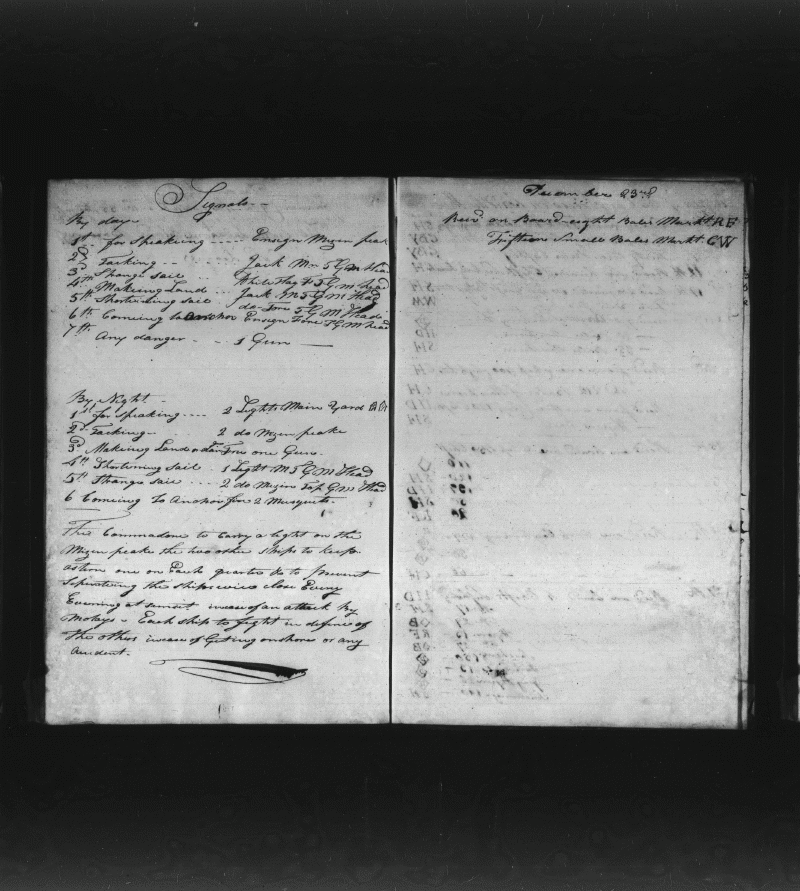 Signals
By day
1st for Speaking ---- Ensign Mizen peak
2d Tacking -- Jack Mn T G M Head
3d Change sail .. White Flag F T G M head
4th Making Land ... Jack Mn T G M Head
5th Shortening sail do Fore T G M Head
6th Comeing to anchor Ensign Fore T G M head
7th Any danger - - 1 Gun
By Night -
1st for Speaking ---- 2 Lights Main Yard
2d Tacking - 2 do Mizen peake
3d Makeing Land do Fore one Gun.
4th Shortening Sail 1 Light M T G M Head
5th Change sail ---- 2 do Mizen Top G M Head
6 Comeing To Anchor fire 2 Musquets.
The Commadore to Carry a light on the
Mizen peake the two other ships to keep
astern one on Each quarter & to prevent
Seperating the ships close Every
Evening at sunset incase of an attack By
Each ship to fight in defence of
the others incase of Geting on shore or any
accident.
December 23rd
Recd on Board eight Bales Markt RF
Fifteen Small Bales Markt CW